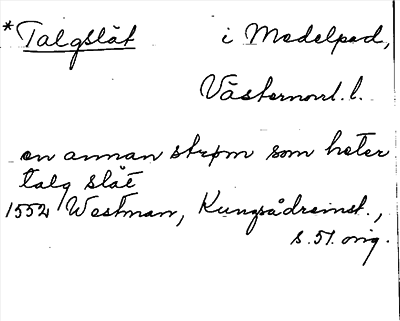 *Talgslåt i Medelpad,
Västernorrl. l.
en annan strøm som heter
talg slåt
1552 Westman, Kungsådreinst.,
s. 51. orig.